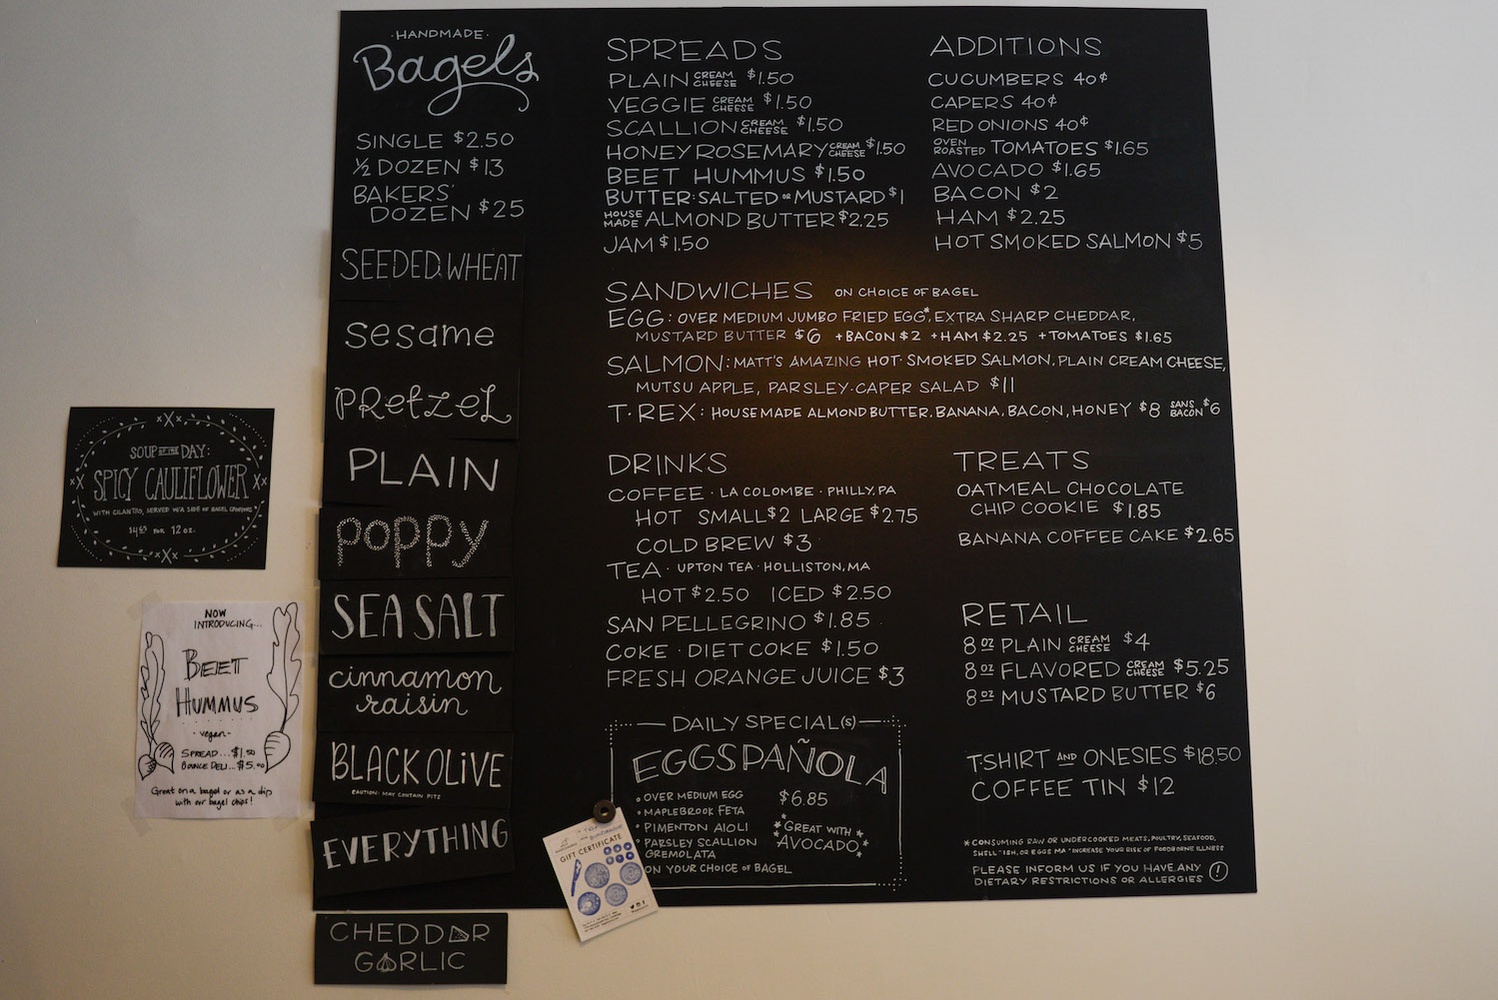 ·HANDMADE·
Bagels
SINGLE $2.50
½ DOZEN $13
BAKERS'
DOZEN $25
SEEDED WHEAT
sesame
PRetzeL
PLAIN
poppy
SEA SALT
cinnamon
raisin
BLACK OLIVE
CAUTION: MAY CONTAIN PITS
EVERYTHING
CHEDDAR
GARLIC
SPREADS
PLAIN CREAM CHEESE $1.50
VEGGIE CREAM CHEESE $1.50
SCALLION CREAM CHEESE $1.50
HONEY ROSEMARY CREAM CHEESE $1.50
BEET HUMMUS $1.50
BUTTER·SALTED OR MUSTARD $1
HOUSE MADE ALMOND BUTTER $2.25
JAM $1.50
ADDITIONS
CUCUMBERS 40¢
CAPERS 40¢
RED ONIONS 40¢
OVEN ROASTED TOMATOES $1.65
AVOCADO $1.65
BACON $2
HAM $2.25
HOT SMOKED SALMON $5
SANDWICHES ON CHOICE OF BAGEL
EGG: OVER MEDIUM JUMBO FRIED EGG*, EXTRA SHARP CHEDDAR,
MUSTARD BUTTER $6 +BACON $2 +HAM $2.25 +TOMATOES $1.65
SALMON: MATT'S AMAZING HOT·SMOKED SALMON, PLAIN CREAM CHEESE,
MUTSU APPLE, PARSLEY·CAPER SALAD $11
T·REX: HOUSEMADE ALMOND BUTTER, BANANA, BACON, HONEY $8 SANS BACON $6
DRINKS
COFFEE · LA COLOMBE · PHILLY, PA
HOT SMALL $2 LARGE $2.75
COLD BREW $3
TEA · UPTON TEA · HOLLISTON, MA
HOT $2.50 ICED $2.50
SAN PELLEGRINO $1.85
COKE · DIET COKE $1.50
FRESH ORANGE JUICE $3
TREATS
OATMEAL CHOCOLATE
CHIP COOKIE $1.85
BANANA COFFEE CAKE $2.65
RETAIL
8 OZ PLAIN CREAM CHEESE $4
8 OZ FLAVORED CREAM CHEESE $5.25
8 OZ MUSTARD BUTTER $6
T·SHIRT AND ONESIES $18.50
COFFEE TIN $12
DAILY SPECIAL(S)
EGGSPAÑOLA
• OVER MEDIUM EGG
• MAPLEBROOK FETA
• PIMENTON AIOLI
• PARSLEY SCALLION
GREMOLATA
ON YOUR CHOICE OF BAGEL
$6.85
*GREAT WITH*
*AVOCADO*
*CONSUMING RAW OR UNDERCOOKED MEATS, POULTRY, SEAFOOD,
OR EGGS INCREASE YOUR RISK OF FOODBORNE ILLNESS
PLEASE INFORM US IF YOU HAVE ANY
DIETARY RESTRICTIONS OR ALLERGIES !
GIFT CERTIFICATE
SOUP OF THE DAY:
SPICY CAULIFLOWER
WITH CILANTRO, SERVED W/A SIDE OF BAGEL
FOR 12 OZ.
NOW
INTRODUCING...
BEET
HUMMUS
-vegan-
SPREAD...$1.50
DELI...$5.00
Great on a bagel or as a dip
with our bagel chips!